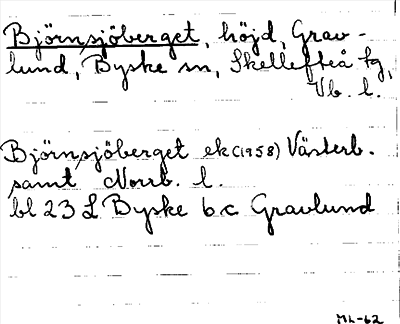 Björnsjöberget, höjd, Grav-
lund, Byske sn, Skellefteå tg,
Vb. l.
Björnsjöberget ek (1958) Västerb.
samt Norrb. l.
bl 23 L Byske b c Gravlund
ML-62